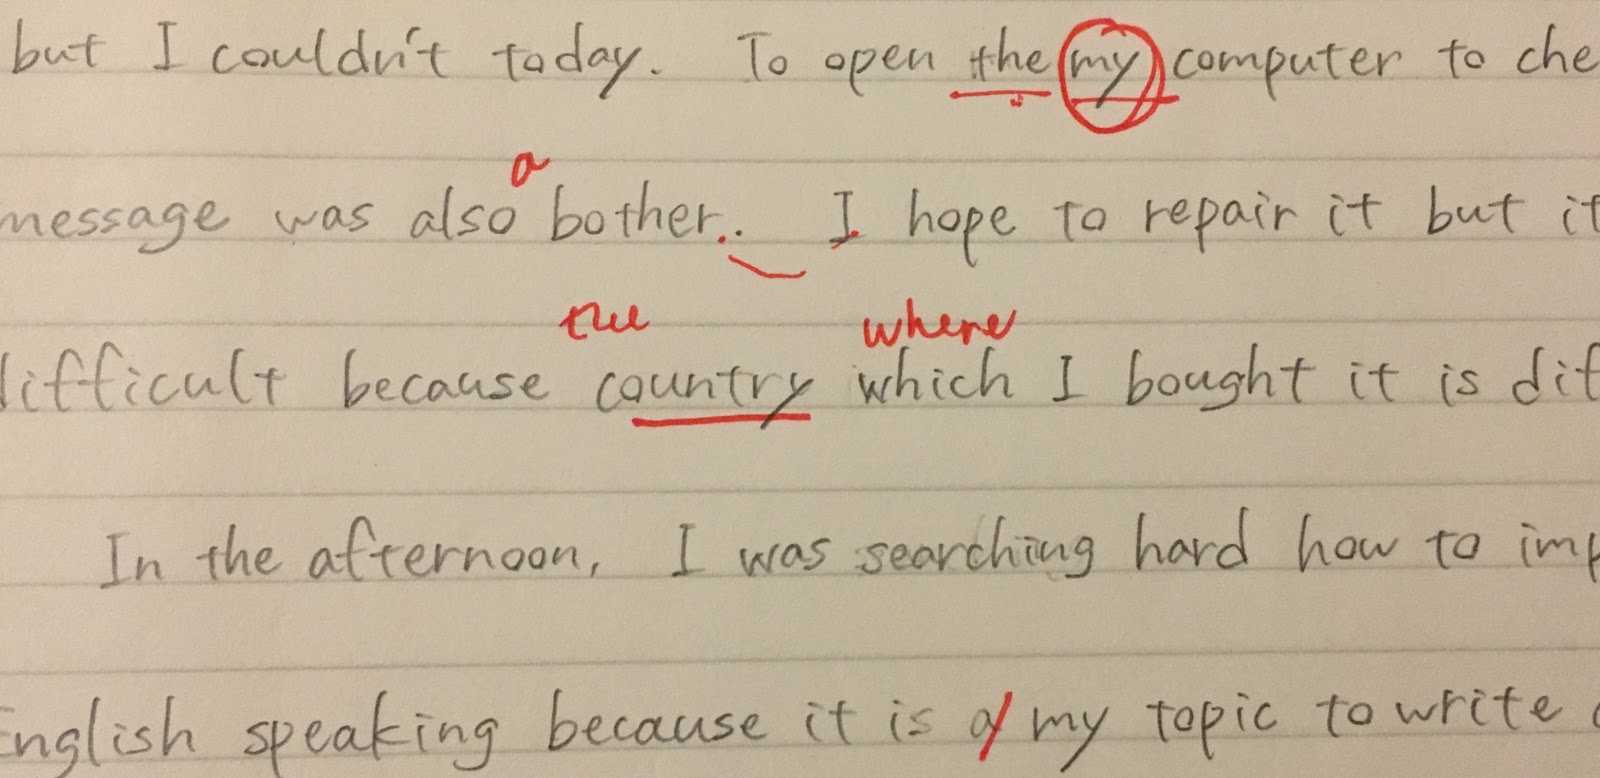 but I couldn't today. To open the my computer to che
a
message was also bother.. I hope to repair it but it
the where
difficult because country which I bought it is dif
In the afternoon, I was searching hard how to imp
English speaking because it is a my topic to write